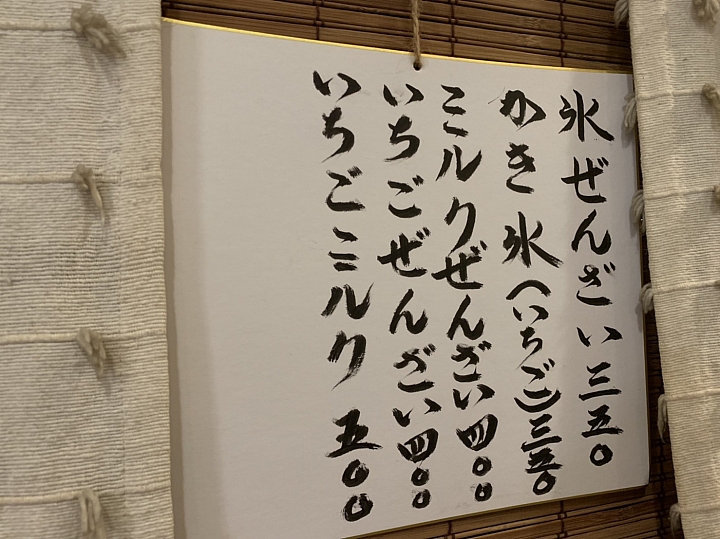 氷ぜんざい三五〇
かき氷(いちご)三五〇
ミルクぜんざい四〇〇
いちごぜんざい四〇〇
いちごミルク 五〇〇